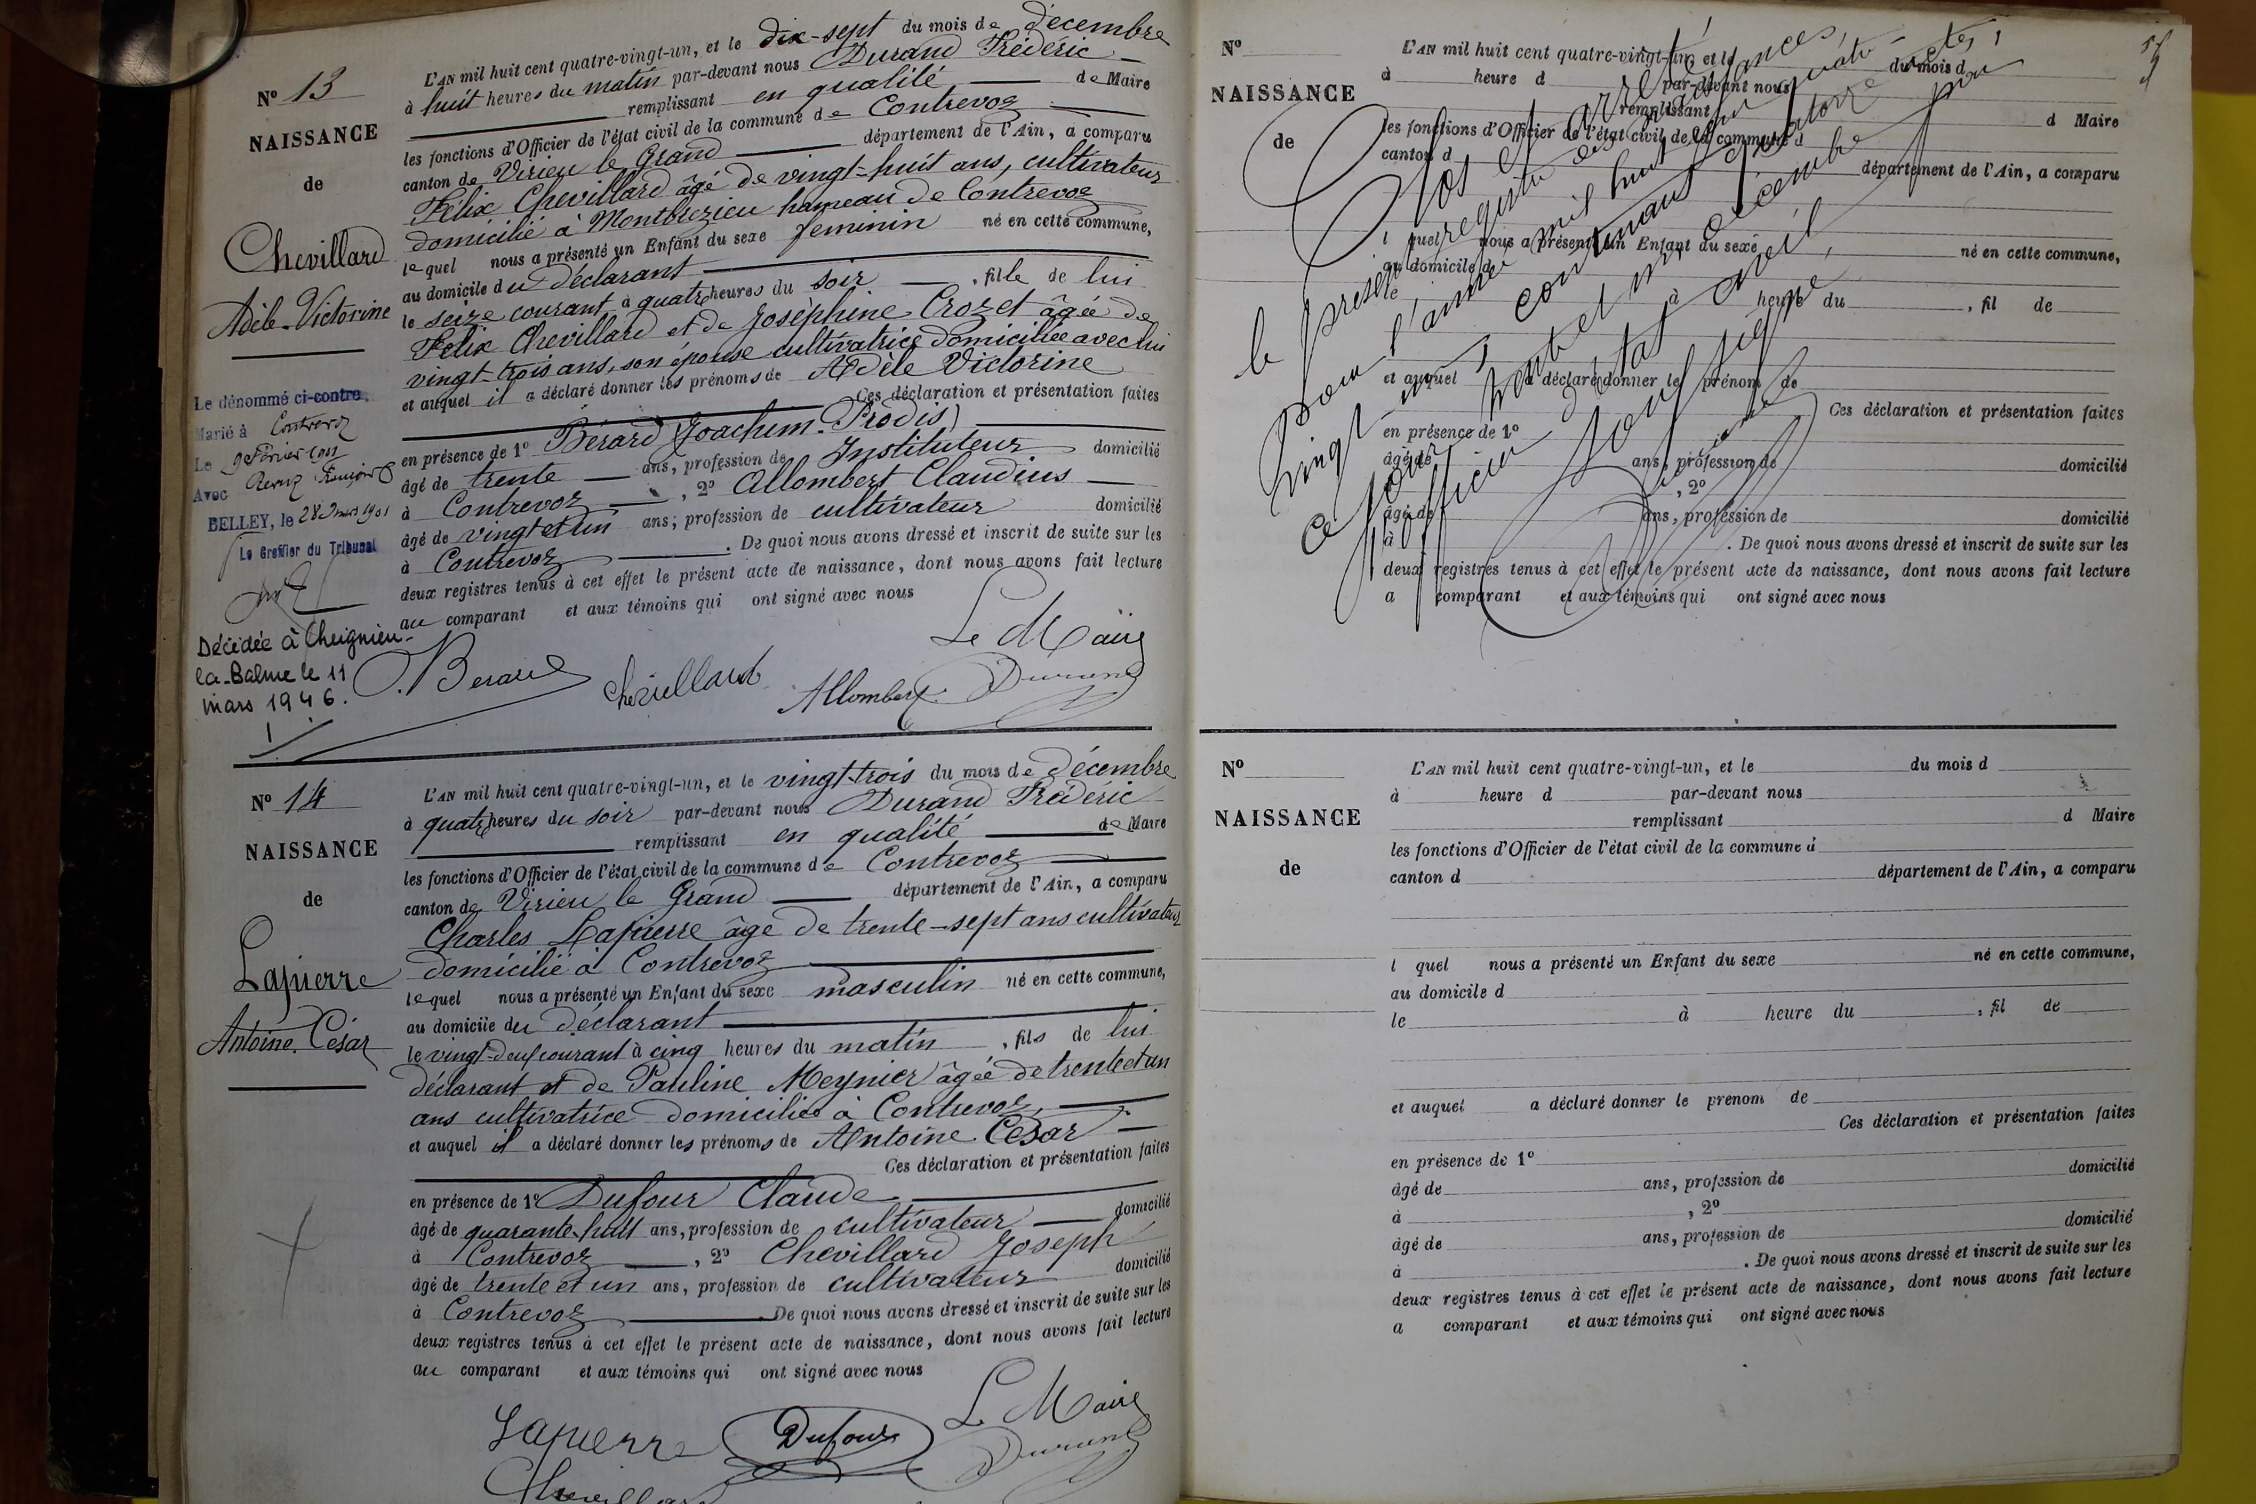 N° 13
NAISSANCE
de
Chevillard
Adèle-Victorine
Le dénommé ci-contre,
Marié à Contrevoz
Le 9 Février 1901
Avec
BELLEY, le 28 mars 1901
Le Greffier du Tribunal
Décédée à Cheignieu-
la-Balme le 11
mars 1946.
L'AN mil huit cent quatre-vingt-un, et le dix-sept du mois de décembre
à huit heures du matin par-devant nous Durand Frédéric
remplissant en qualité de Maire
les fonctions d'Officier de l'état civil de la commune de Contrevoz
canton de Virieu le Grand département de l'Ain, a comparu
Félix Chevillard âgé de vingt-huit ans, cultivateur
domicilié à Montbrezieu hameau de Contrevoz
lequel nous a présenté un Enfant du sexe féminin né en cette commune,
au domicile du déclarant
le seize courant à quatre heures du soir, fille de lui
Félix Chevillard et de Joséphine Crozet âgée de
vingt-trois ans, son épouse cultivatrice domiciliée avec lui
et auquel il a déclaré donner les prénoms de Adèle Victorine
Ces déclaration et présentation faites
en présence de 1° Bérard (Joachim-Prodis)
âgé de trente ans, profession de Instituteur domicilié
à Contrevoz, 2° Allombert Claudius
âgé de vingt et un ans, profession de cultivateur domicilié
à Contrevoz. De quoi nous avons dressé et inscrit de suite sur les
deux registres tenus à cet effet le présent acte de naissance, dont nous avons fait lecture
au comparant et aux témoins qui ont signé avec nous
Le Maire
J. Berard Chevillard Allombert Durand
N° 14
NAISSANCE
de
Lapierre
Antoine-César
L'AN mil huit cent quatre-vingt-un, et le vingt-trois du mois de décembre
à quatre heures du soir par-devant nous Durand Frédéric
remplissant en qualité de Maire
les fonctions d'Officier de l'état civil de la commune de Contrevoz
canton de Virieu le Grand département de l'Ain, a comparu
Charles Lapierre âgé de trente-sept ans cultivateur
domicilié à Contrevoz
lequel nous a présenté un Enfant du sexe masculin né en cette commune,
au domicile du déclarant
le vingt-deux courant à cinq heures du matin, fils de lui
déclarant et de Pauline Meynier âgée de trente et un
ans cultivatrice domiciliée à Contrevoz,
et auquel il a déclaré donner les prénoms de Antoine César
Ces déclaration et présentation faites
en présence de 1° Dufour Claude
âgé de quarante-huit ans, profession de cultivateur domicilié
à Contrevoz, 2° Chevillard Joseph
âgé de trente et un ans, profession de cultivateur domicilié
à Contrevoz. De quoi nous avons dressé et inscrit de suite sur les
deux registres tenus à cet effet le présent acte de naissance, dont nous avons fait lecture
au comparant et aux témoins qui ont signé avec nous
Le Maire
Lapierre Dufour Durand
Chevillard
N°
NAISSANCE
de
L'AN mil huit cent quatre-vingt-un, et le du mois d
à heure d par-devant nous
remplissant d Maire
les fonctions d'Officier de l'état civil de la commune d
canton d département de l'Ain, a comparu
l quel nous a présenté un Enfant du sexe né en cette commune,
au domicile d
le à heure du, fil de
et auquel a déclaré donner le prénom de
Ces déclaration et présentation faites
en présence de 1°
âgé de ans, profession de domicilié
à, 2°
âgé de ans, profession de domicilié
à. De quoi nous avons dressé et inscrit de suite sur les
deux registres tenus à cet effet le présent acte de naissance, dont nous avons fait lecture
a comparant et aux témoins qui ont signé avec nous
Clos et arrêté
le présent registre des naissances,
pour l'année mil huit cent quatre-
vingt-un, contenant quatorze actes,
ce jour trente et un décembre par
l'officier d'état civil,
soussigné
N°
NAISSANCE
de
L'AN mil huit cent quatre-vingt-un, et le du mois d
à heure d par-devant nous
remplissant d Maire
les fonctions d'Officier de l'état civil de la commune d
canton d département de l'Ain, a comparu
l quel nous a présenté un Enfant du sexe né en cette commune,
au domicile d
le à heure du, fil de
et auquel a déclaré donner le prénom de
Ces déclaration et présentation faites
en présence de 1°
âgé de ans, profession de domicilié
à, 2°
âgé de ans, profession de domicilié
à. De quoi nous avons dressé et inscrit de suite sur les
deux registres tenus à cet effet le présent acte de naissance, dont nous avons fait lecture
a comparant et aux témoins qui ont signé avec nous